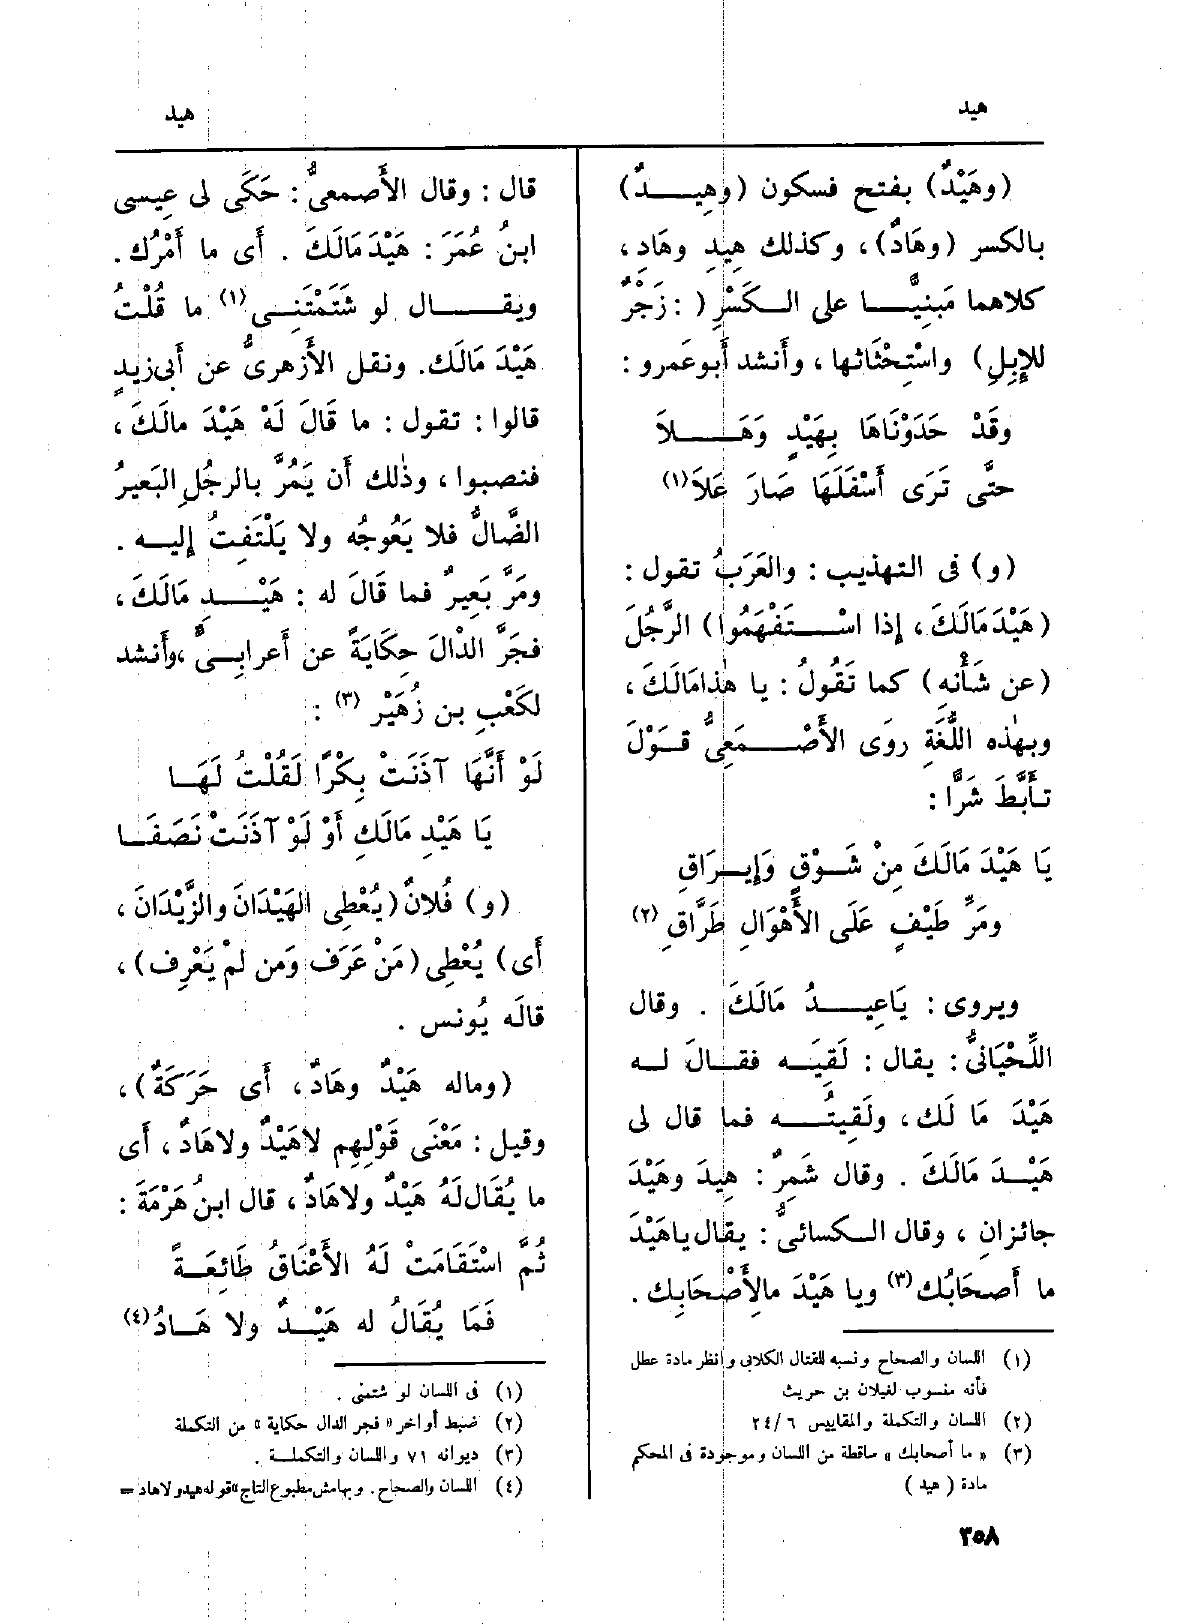 هيد
هيد
(وهَيْدٌ) بفتح فسكون (وهِيــدٌ)
بالكسر (وهَادٌ)، وكذلك هِيدِ وهَادِ،
كلاهما مَبنِيًّــا على الــكَسْرِ ( : زَجْرٌ
للإِبِلِ) واسْتِحْثَاثها ، وأَنشد أَبوعَمرو :
وقَدْ حَدَوْنَاهَا بِهَيْدٍ وَهَــلَا
حتَّى تَرَى أَسْفَلَهَا صَارَ عَلَا (١)
(و) فى التهذيب : والعَرَبُ تقول :
(هَيْدَ مَالَكَ ، إِذا اسْــتَفْهَمُوا) الرَّجُلَ
(عن شَأْنِهِ) كما تَقُولُ : يا هٰذا مَالَكَ ،
وبهٰذه اللُّغَةِ روَى الأَصْــمَعِيُّ قَوْلَ
تأَبَّطَ شَرًّا :
يَا هَيْدَ مَالَكَ مِنْ شَوْقٍ وَإِيــرَاقِ
ومَرِّ طَيْفٍ عَلَى الأَهْوَالِ طَرَّاقِ (٢)
ويروى : يَاعِيــدُ مَالَكَ . وقال
اللِّحْيَانىُّ : يقال : لَقِيَــه فقــالَ لــه
هَيْدَ مَا لَك ، ولَقِيتُــه فما قال لى
هَيْــدَ مَالَكَ . وقال شَمِرٌ : هِيدَ وهَيْدَ
جائزانِ ، وقال الــكسائىُّ : يقال ياهَيْدَ
ما أَصحَابُك (٣) ويا هَيْدَ مالِأَصْحَابِك .
(١) اللسان والصحاح ونسبه للقتال الكلابى وانظر مادة عطل
فأنه منسوب لغيلان بن حريث
(٢) اللسان والتكملة والمقاييس ٢٤/٦
(٣) « ما أصحابك » ساقطة من اللسان وموجودة فى المحكم
مادة ( هيد )
٣٥٨
قال : وقال الأَصمعىُّ : حَكَى لى عِيسى
ابنُ عُمَرَ : هَيْدَ مَالَكَ . أَى ما أَمْرُك .
ويقــال لو شَتَمْتَنِــى (١) ما قُلْتُ
هَيْدَ مَالَك. ونقل الأَزهرىُّ عن أَبى زيدٍ
قالوا : تقول : ما قَالَ لَهْ هَيْدَ مالَكَ ،
فنصبوا ، وذٰلك أَن يَمُرَّ بالرجُلِ البَعيرُ
الضَّالُّ فلا يَعُوجُه ولا يَلْتَفِتُ إِليــه .
ومَرَّ بَعِيرٌ فما قَالَ له : هَيْــدِ مَالَكَ ،
فجَرَّ الدْالَ حِكَايَةً عن أَعرابِــىٍّ ،وأَنشد
لكَعْبِ بن زُهَيْر (٣) :
لَوْ أَنَّهَا آذَنَتْ بِكْرًا لَقُلْتُ لَهَــا
يَا هَيْدِ مَالَكِ أَوْ لَوْ آذَنَتْ نَصَفَــا
(و) فُلانٌ (يُعْطِى الهَيْدَانَ والزَّيْدَانَ ،
أَى) يُعْطِى (مَنْ عَرَف وَمَن لمْ يَعْرِف) ،
قالَه يُونس .
(وماله هَيْدٌ وهَادٌ ، أَى حَرَكَةٌ) ،
وقيل : مَعْنَى قَوْلِهِم لاهَيْدٌ ولاهَادٌ ، أَى
ما يُقَال لَهُ هَيْدٌ ولاهَادٌ ، قال ابنُ هَرْمَةَ :
ثُمَّ اسْتَقَامَتْ لَهُ الأَعْنَاقُ طَائِعَــةً
فَمَا يُقَالُ له هَيْــدٌ ولا هَــادُ (٤)
(١) فى اللسان لو شتمنى .
(٢) ضبط أواخر « فجر الدال حكاية » من التكملة
(٣) ديوانه ٧١ واللسان والتكملــة .
(٤) اللسان والصحاح . وبهامش مطبوع التاج «قوله هيد ولا هاد =